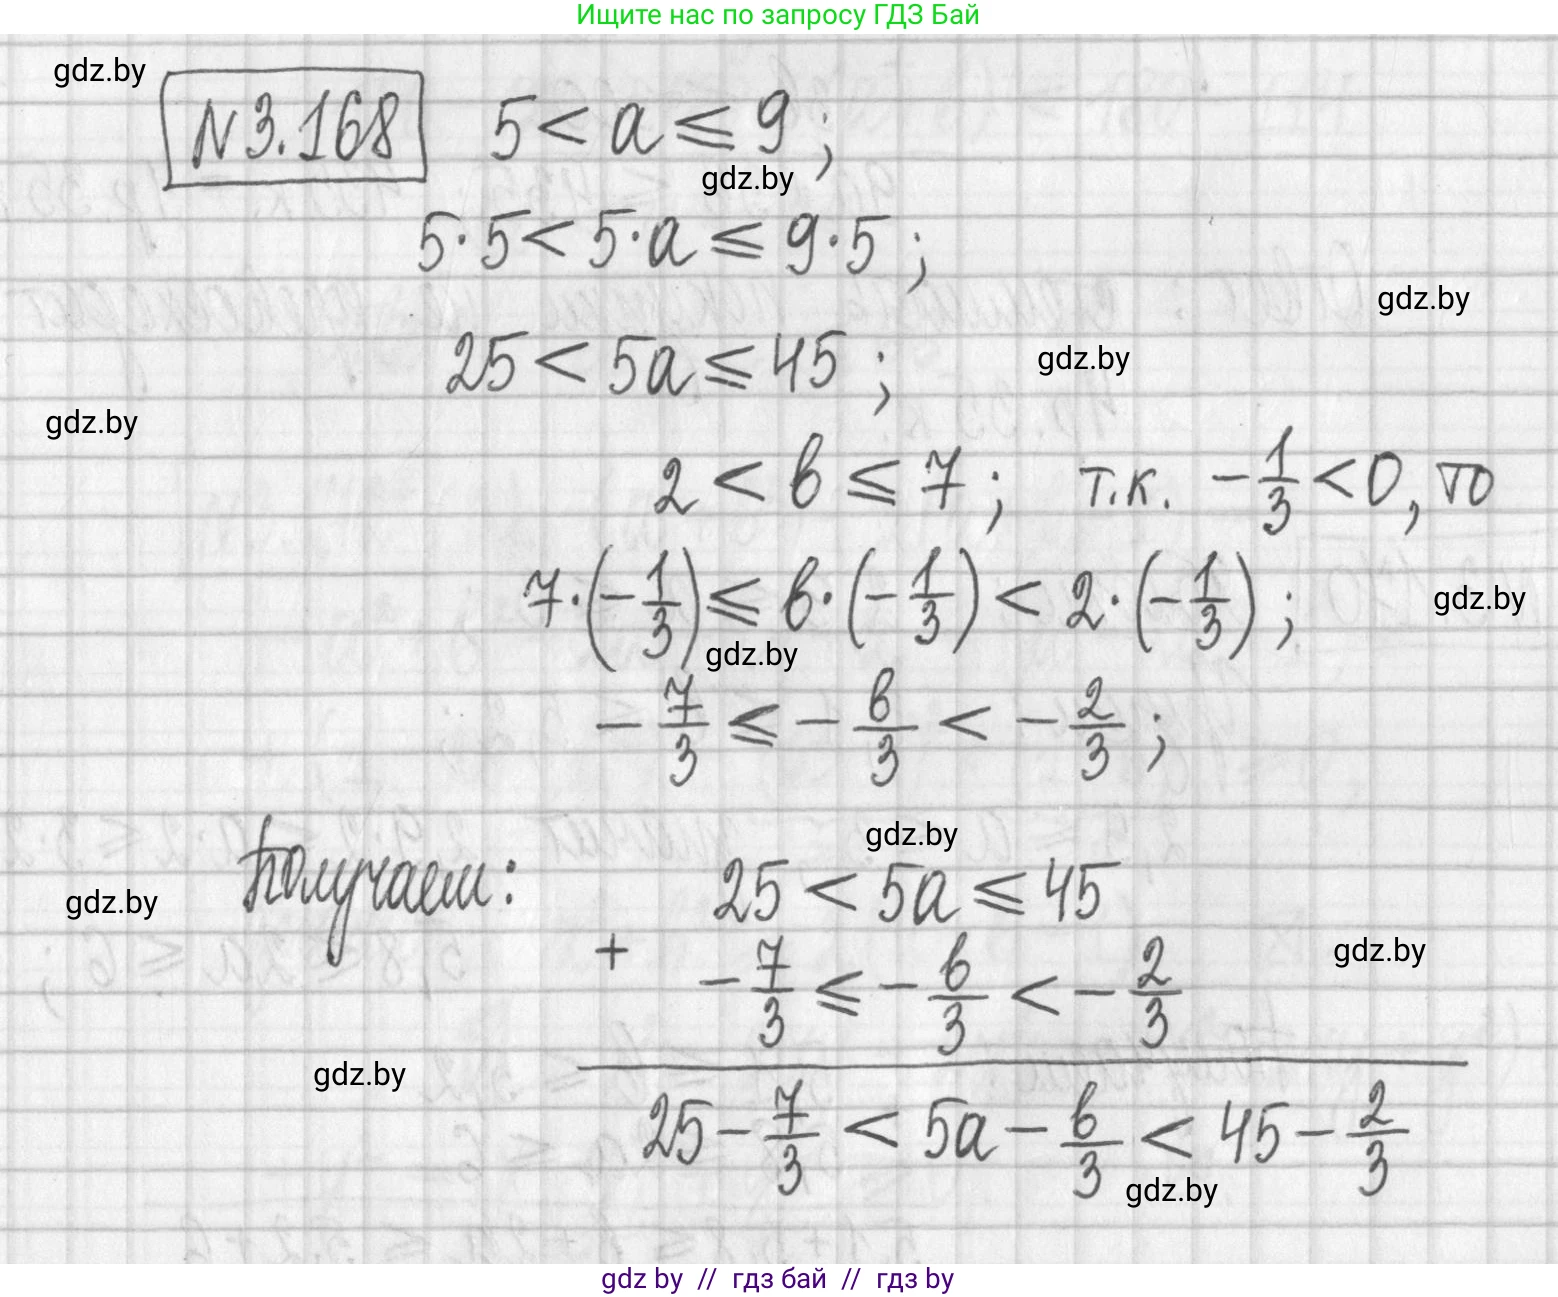 Ищите нас по запросу ГДЗ Бай
gdz.by
N 3.168 5 < a ≤ 9 ;
gdz.by
5·5 < 5·a ≤ 9·5 ;
gdz.by
25 < 5a ≤ 45 ;
gdz.by
gdz.by
2 < b ≤ 7 ; т.к. -1/3 < 0, то
7·(-1/3) ≤ b·(-1/3) < 2·(-1/3) ;
gdz.by
gdz.by
-7/3 ≤ -b/3 < -2/3 ;
gdz.by
Получаем: 25 < 5a ≤ 45
gdz.by
+ -7/3 ≤ -b/3 < -2/3
gdz.by
gdz.by
25 - 7/3 < 5a - b/3 < 45 - 2/3
gdz.by
gdz by // гдз бай // гдз by